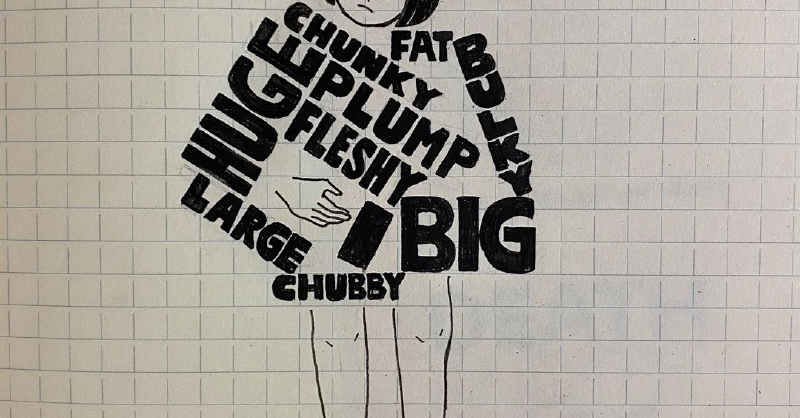 CHUNKY
FAT
BULKY
HUGE
PLUMP
FLESHY
LARGE
BIG
CHUBBY